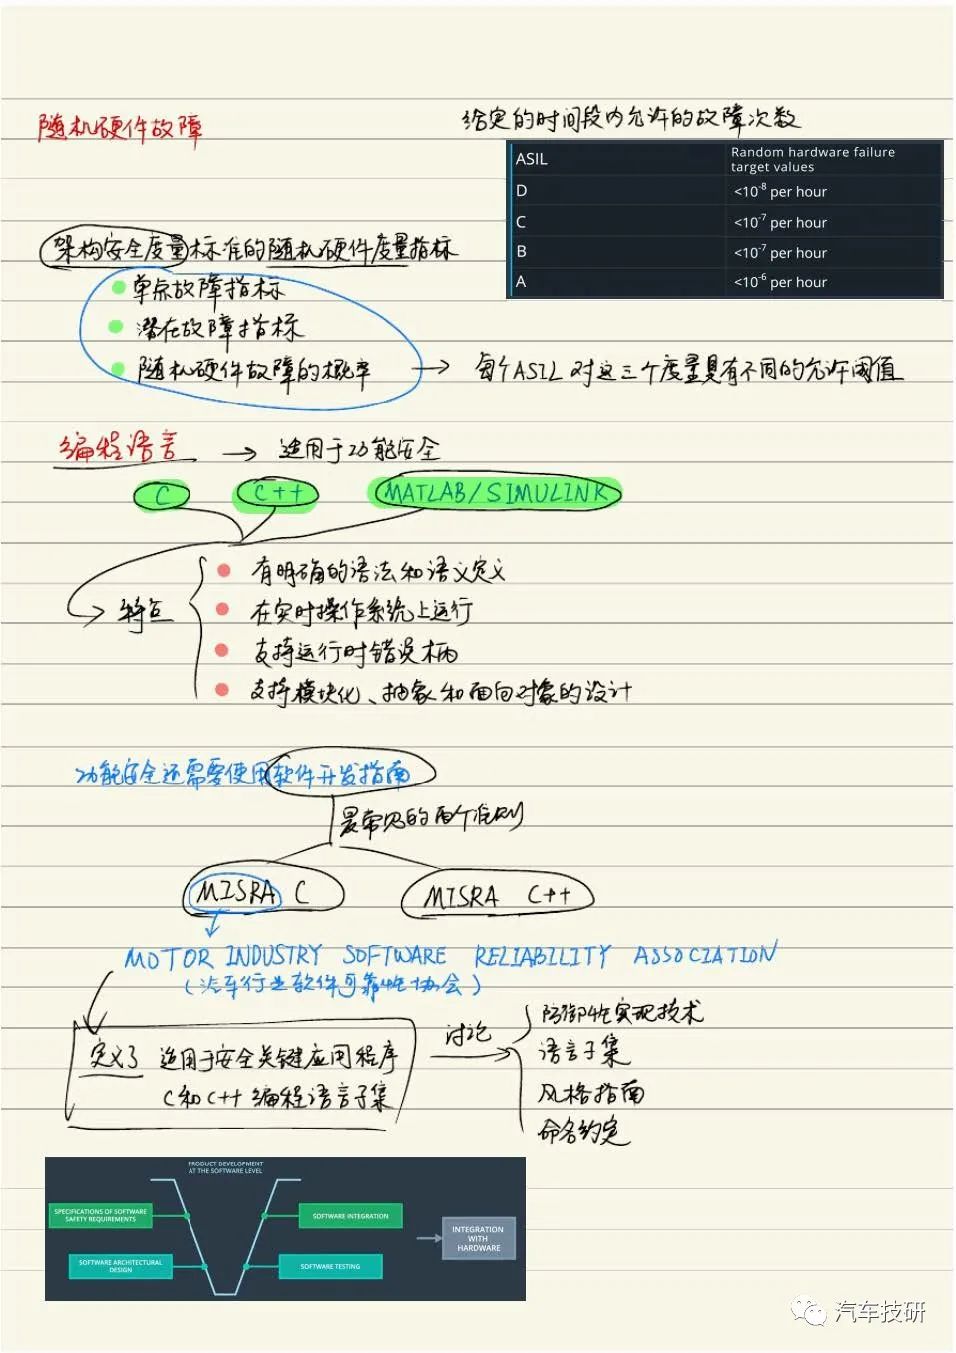 随机硬件故障
给定的时间段内允许的故障次数
ASIL Random hardware failure target values
D <10⁻⁸ per hour
C <10⁻⁷ per hour
B <10⁻⁷ per hour
A <10⁻⁶ per hour
架构安全度量标准的随机硬件度量指标
单点故障指标
潜在故障指标
随机硬件故障的概率 → 每个ASIL对这三个度量具有不同的允许阈值
编程语言 → 适用于功能安全
C C++ MATLAB/SIMULINK
特点
有明确的语法和语义定义
在实时操作系统上运行
支持运行时错误柄
支持模块化、抽象和面向对象的设计
功能安全还需要使用软件开发指南
最常见的两个准则
MISRA C MISRA C++
MOTOR INDUSTRY SOFTWARE RELIABILITY ASSOCIATION
(汽车行业软件可靠性协会)
定义了 适用于安全关键应用程序
C和C++编程语言子集
讨论
防御性实现技术
语言子集
风格指南
命名约定
PRODUCT DEVELOPMENT
AT THE SOFTWARE LEVEL
SPECIFICATIONS OF SOFTWARE
SAFETY REQUIREMENTS
SOFTWARE INTEGRATION
INTEGRATION
WITH
HARDWARE
SOFTWARE ARCHITECTURAL
DESIGN
SOFTWARE TESTING
汽车技研